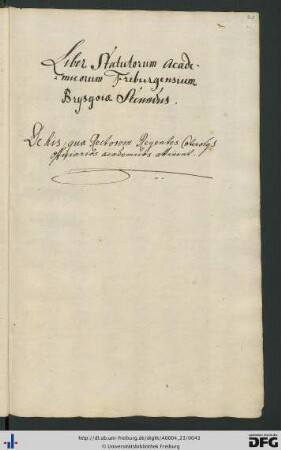 Liber Statutorum Acade-
micorum Friburgensium
Brysgoiæ
De his, quæ Rectorem Regentes
officiarios academicos attinent.
http://dl.ub.uni-freiburg.de/diglit/A0004_23/0043
© Universitätsbibliothek Freiburg
DFG